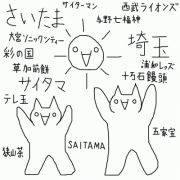 サイターマン
西武ライオンズ
さいたま
与野七福神
大宮ソニックシティー
埼玉
彩の国
浦和レッズ
草加煎餅
十万石饅頭
サイタマ
テレ玉
五家宝
狭山茶
SAITAMA